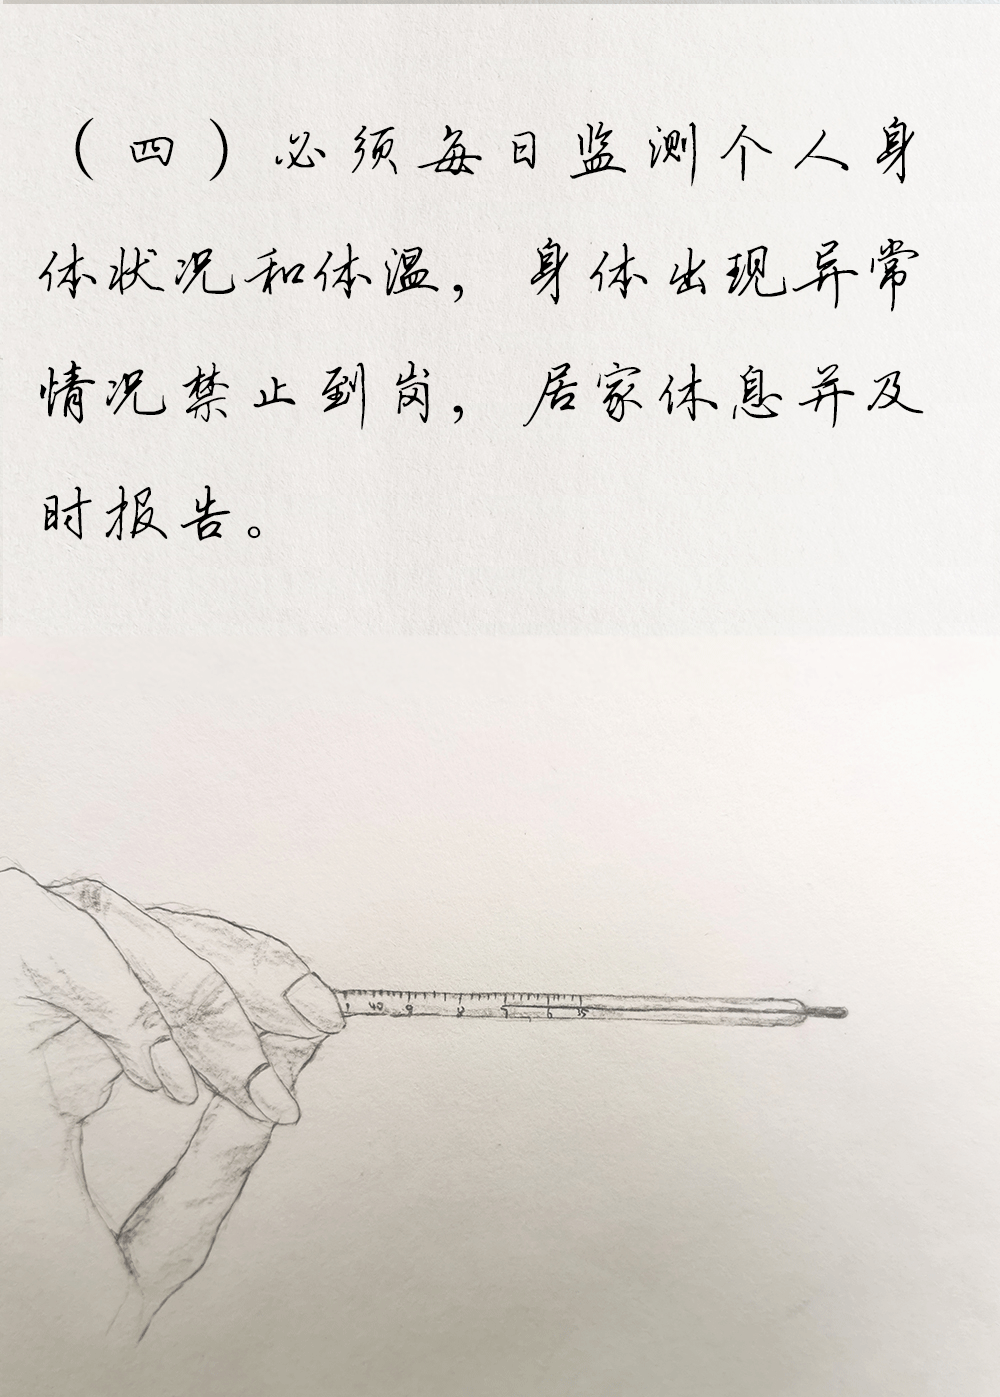 （四）必须每日监测个人身
体状况和体温，身体出现异常
情况禁止到岗，居家休息并及
时报告。